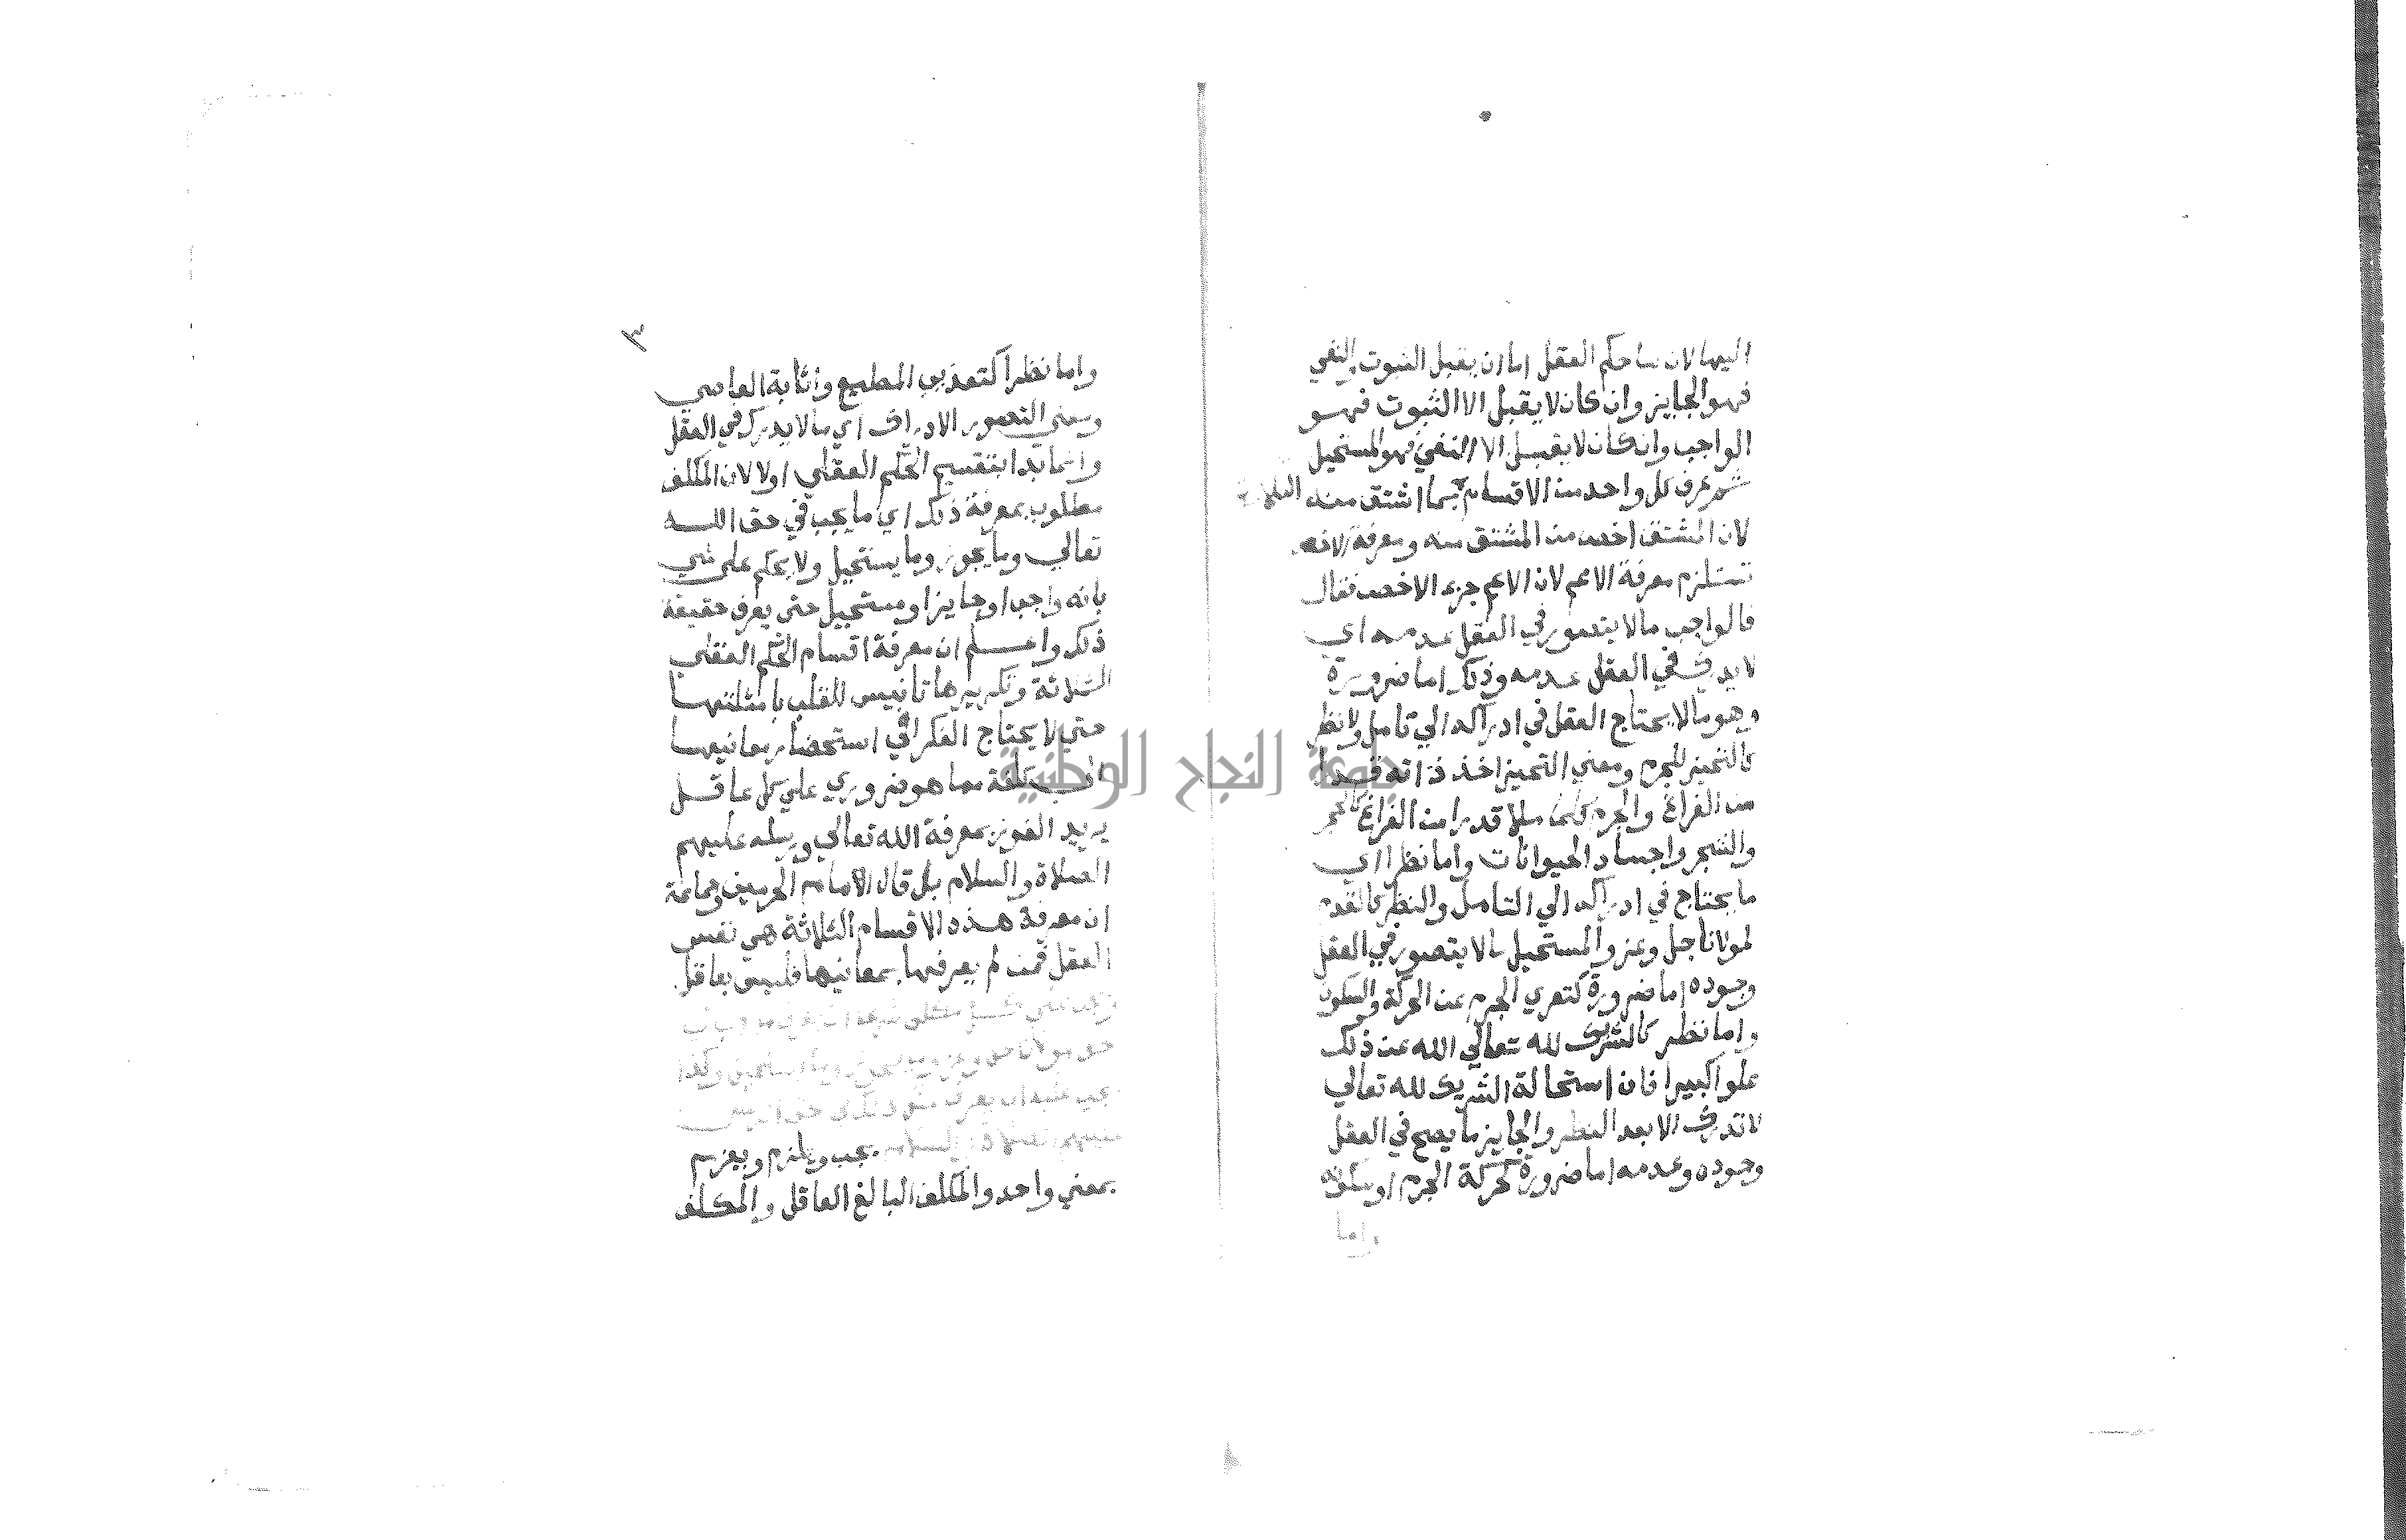 اليها لان ما حكم العقل اما ان يقبل الثبوت والنفي
فهو الجايز وان كان لا يقبل الا الثبوت فهو
الواجب وان كان لا يقبل الا النفي فهو المستحيل
ثم عرف كل واحد من الاقسام بما اشتق منه الثلاثة
لان المشتق اخص من المشتق منه ومعرفة الاخص
تستلزم معرفة الاعم لان الاعم جزء الاخص فقال
فالواجب ما لا يتصور في العقل عدمه اي
لا يدرك في العقل عدمه وذلك اما ضرورة
وهو ما لا يحتاج العقل في ادراكه الي تامل ولا نظر
كالتحيز للجرم ومعني التحيز اخذ ذاته قدرا
من الفراغ والجرم كلما ملا قدرا من الفراغ كالحجر
والشجر واجساد الحيوانات واما نظرا اي
ما يحتاج في ادراكه الي التامل والنظر كالقدم
لمولانا جل وعز والمستحيل ما لا يتصور في العقل
وجوده اما ضرورة كتعري الجرم عن الحركة والسكون
واما نظر كالشريك لله تعالي الله عن ذلك
علوا كبيرا فان استحالة الشريك لله تعالي
لا تدرك الا بعد النظر والجايز ما يصح في العقل
وجوده وعدمه اما ضرورة كحركة الجرم او سكونه
واما
٣
واما نظرا كتعذيب المطيع واثابة العاصي
ومعني التصور الادراك اي ما لا يدرك في العقل
وانما بدا بتقسيم الحكم العقلي اولا لان المكلف
مطلوب بمعرفة ذلك اي ما يجب في حق الله
تعالي وما يجوز وما يستحيل ولا يحكم علي شي
بانه واجب او جايز او مستحيل حتي يعرف حقيقة
ذلك واعلم ان معرفة اقسام الحكم العقلي
الثلاثة وتكريرها تانيس للقلب بامثلتها
حتي لا يحتاج الفكر في استحضار معانيها
الي كلفة مما هو ضروري علي كل عاقل
يريد الفوز بمعرفة الله تعالي ورسله عليهم
الصلاة والسلام بل قال الامام الحرمين وجماعة
ان معرفة هذه الاقسام الثلاثة هي نفس
العقل فمن لم يعرفها بمعانيها فليس بعاقل
يجب ويلزم ويعزم
بمعني واحد والمكلف البالغ العاقل والمكلف
جامعة النجاح الوطنية